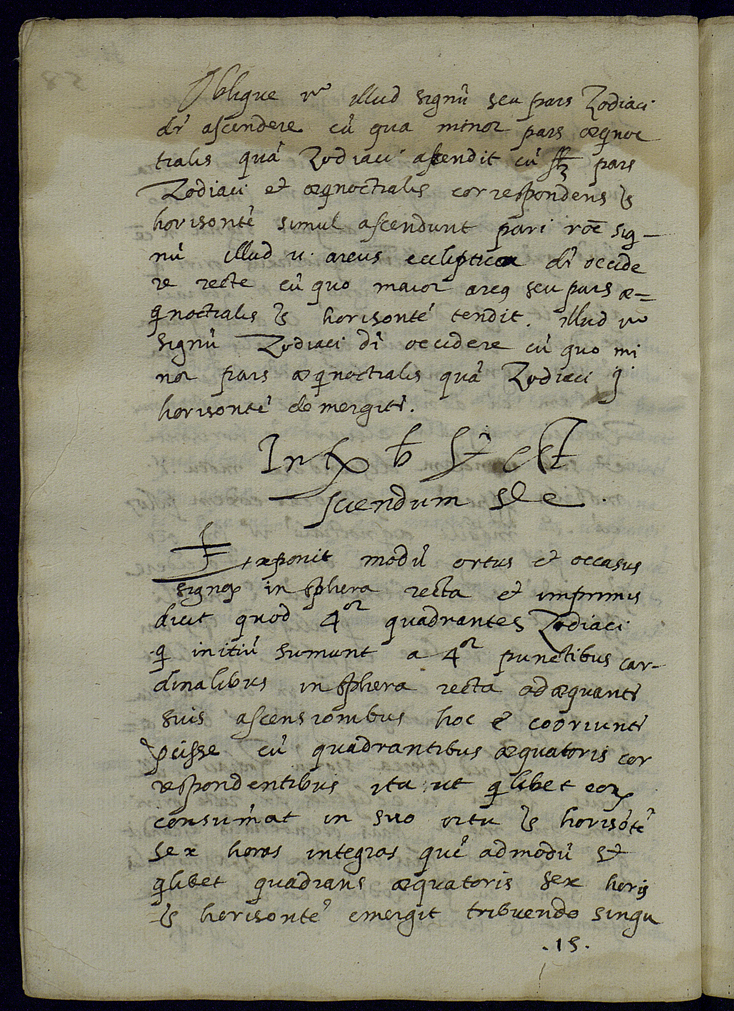 Oblique v° illud signũ seu pars Zodiaci
dr̃ ascendere cũ qua minor pars æqnoc
tialis quã Zodiaci ascendit cũ pars
Zodiaci et æqnoctialis correspondens
horisontẽ simul ascendunt pari rõe sig–
nũ illud u. arcus eccliptica dr̃ occide
re recte cũ quo maior arcq seu pars æ=
qnoctialis horisontẽ tendit. illud v°
signũ Zodiaci dr̃ occidere cũ quo mi
nor pars æqnoctialis quã Zodiaci
horisontẽ demergitr̃.
est
sciendum
Exponit modũ ortus et occasus
signoꝝ in sphera recta et imprimis
dicit quod 4or quadrantes Zodiaci
q initiũ sumunt a 4or punctibus car-
dinalibus in sphera recta adæquantr̃
suis ascensionibus hoc ẽ cooriuntr̃
pcisse cũ quadrantibus æquatoris cor
respondentibus ita ut qlibet eoꝝ
consumat in suo ortu horisõtẽ
sex horas integras quẽ admodũ et
qlibet quadrans æquatoris sex horis
horisontẽ emergit tribuendo singu
.15.